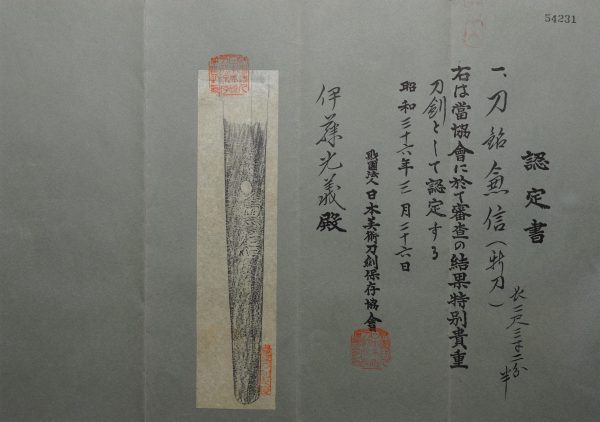 54231
認定書
一、刀 銘 兼信（新刀）
長二尺三寸二分半
右は當協會に於て審査の結果特別貴重
刀劍として認定する
昭和三十六年三月二十六日
財團法人日本美術刀劍保存協會
伊藤光義殿